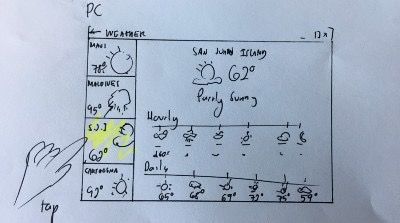 PC
← WEATHER
MAUI
78°
MALDIVES
95°
S.J.I
62°
CARTAGENA
92°
tap
SAN JUAN ISLAND
62°
Partly Sunny
Hourly
Daily
65° 68° 69° 72° 75° 59°